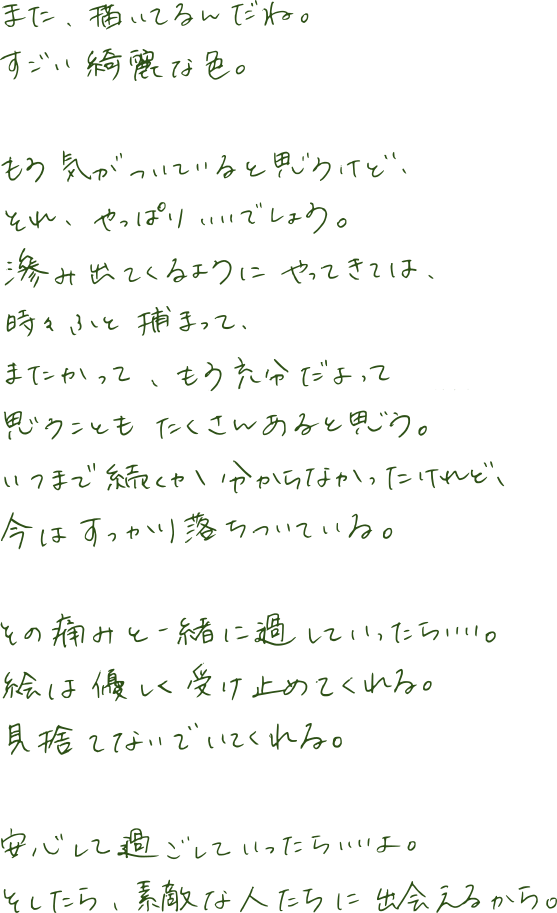 また、描いてるんだね。
すごい綺麗な色。
もう気がついていると思うけど、
それ、やっぱりいいでしょう。
滲み出てくるようにやってきては、
時々ふと捕まって、
またかって、もう充分だよって
思うこともたくさんあると思う。
いつまで続くか分からなかったけれど、
今はすっかり落ちついている。
その痛みと一緒に過していったらいい。
絵は優しく受け止めてくれる。
見捨てないでいてくれる。
安心して過ごしていったらいいよ。
そしたら、素敵な人たちに出会えるから。